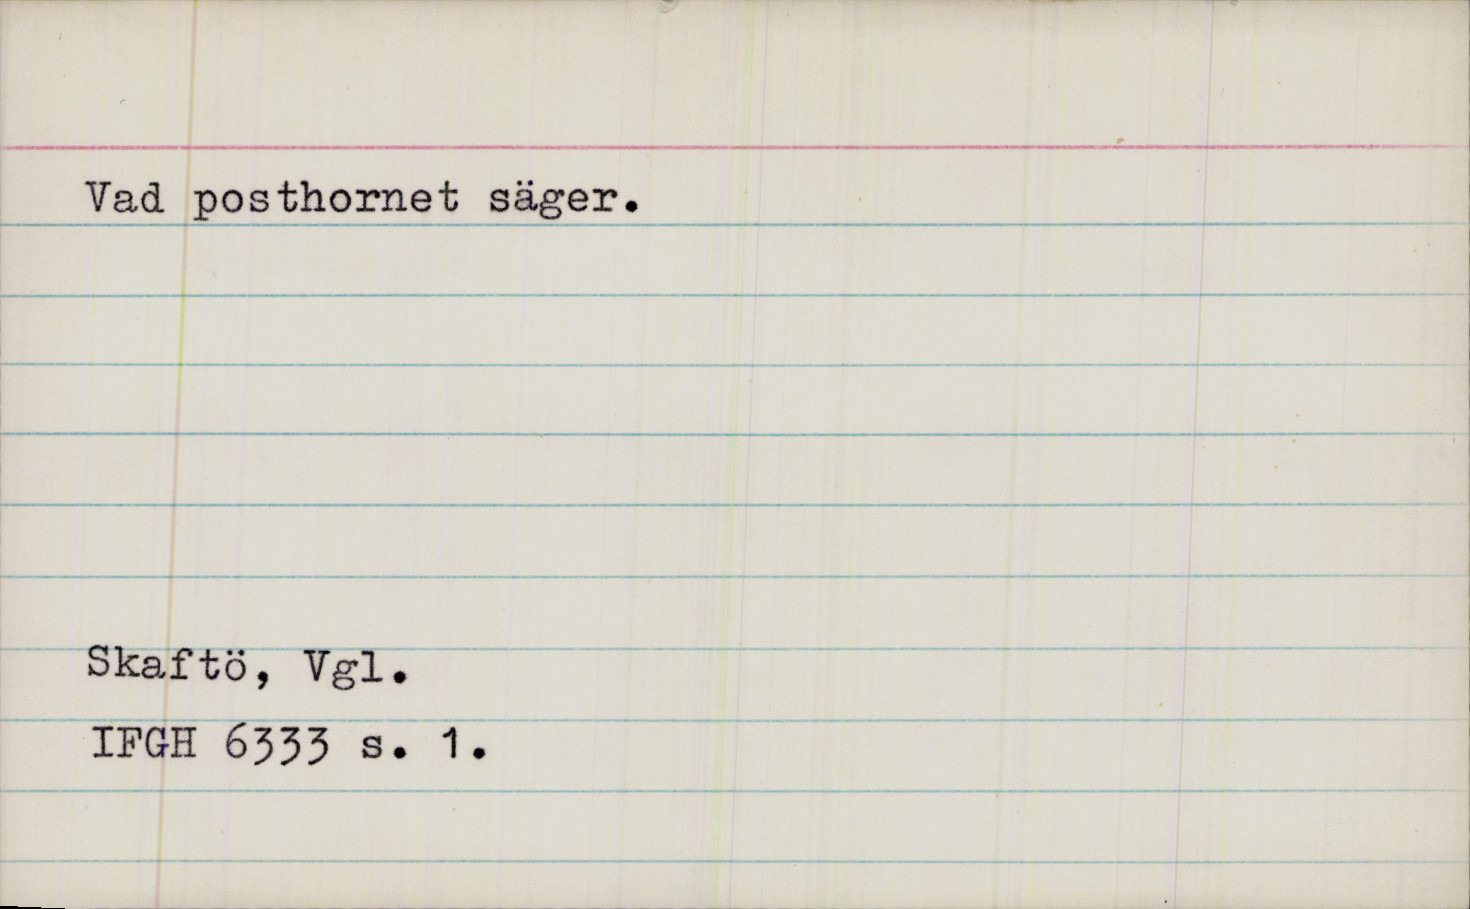 Vad posthornet säger.
Skaftö, Vgl.
IFGH 6333 s. 1.